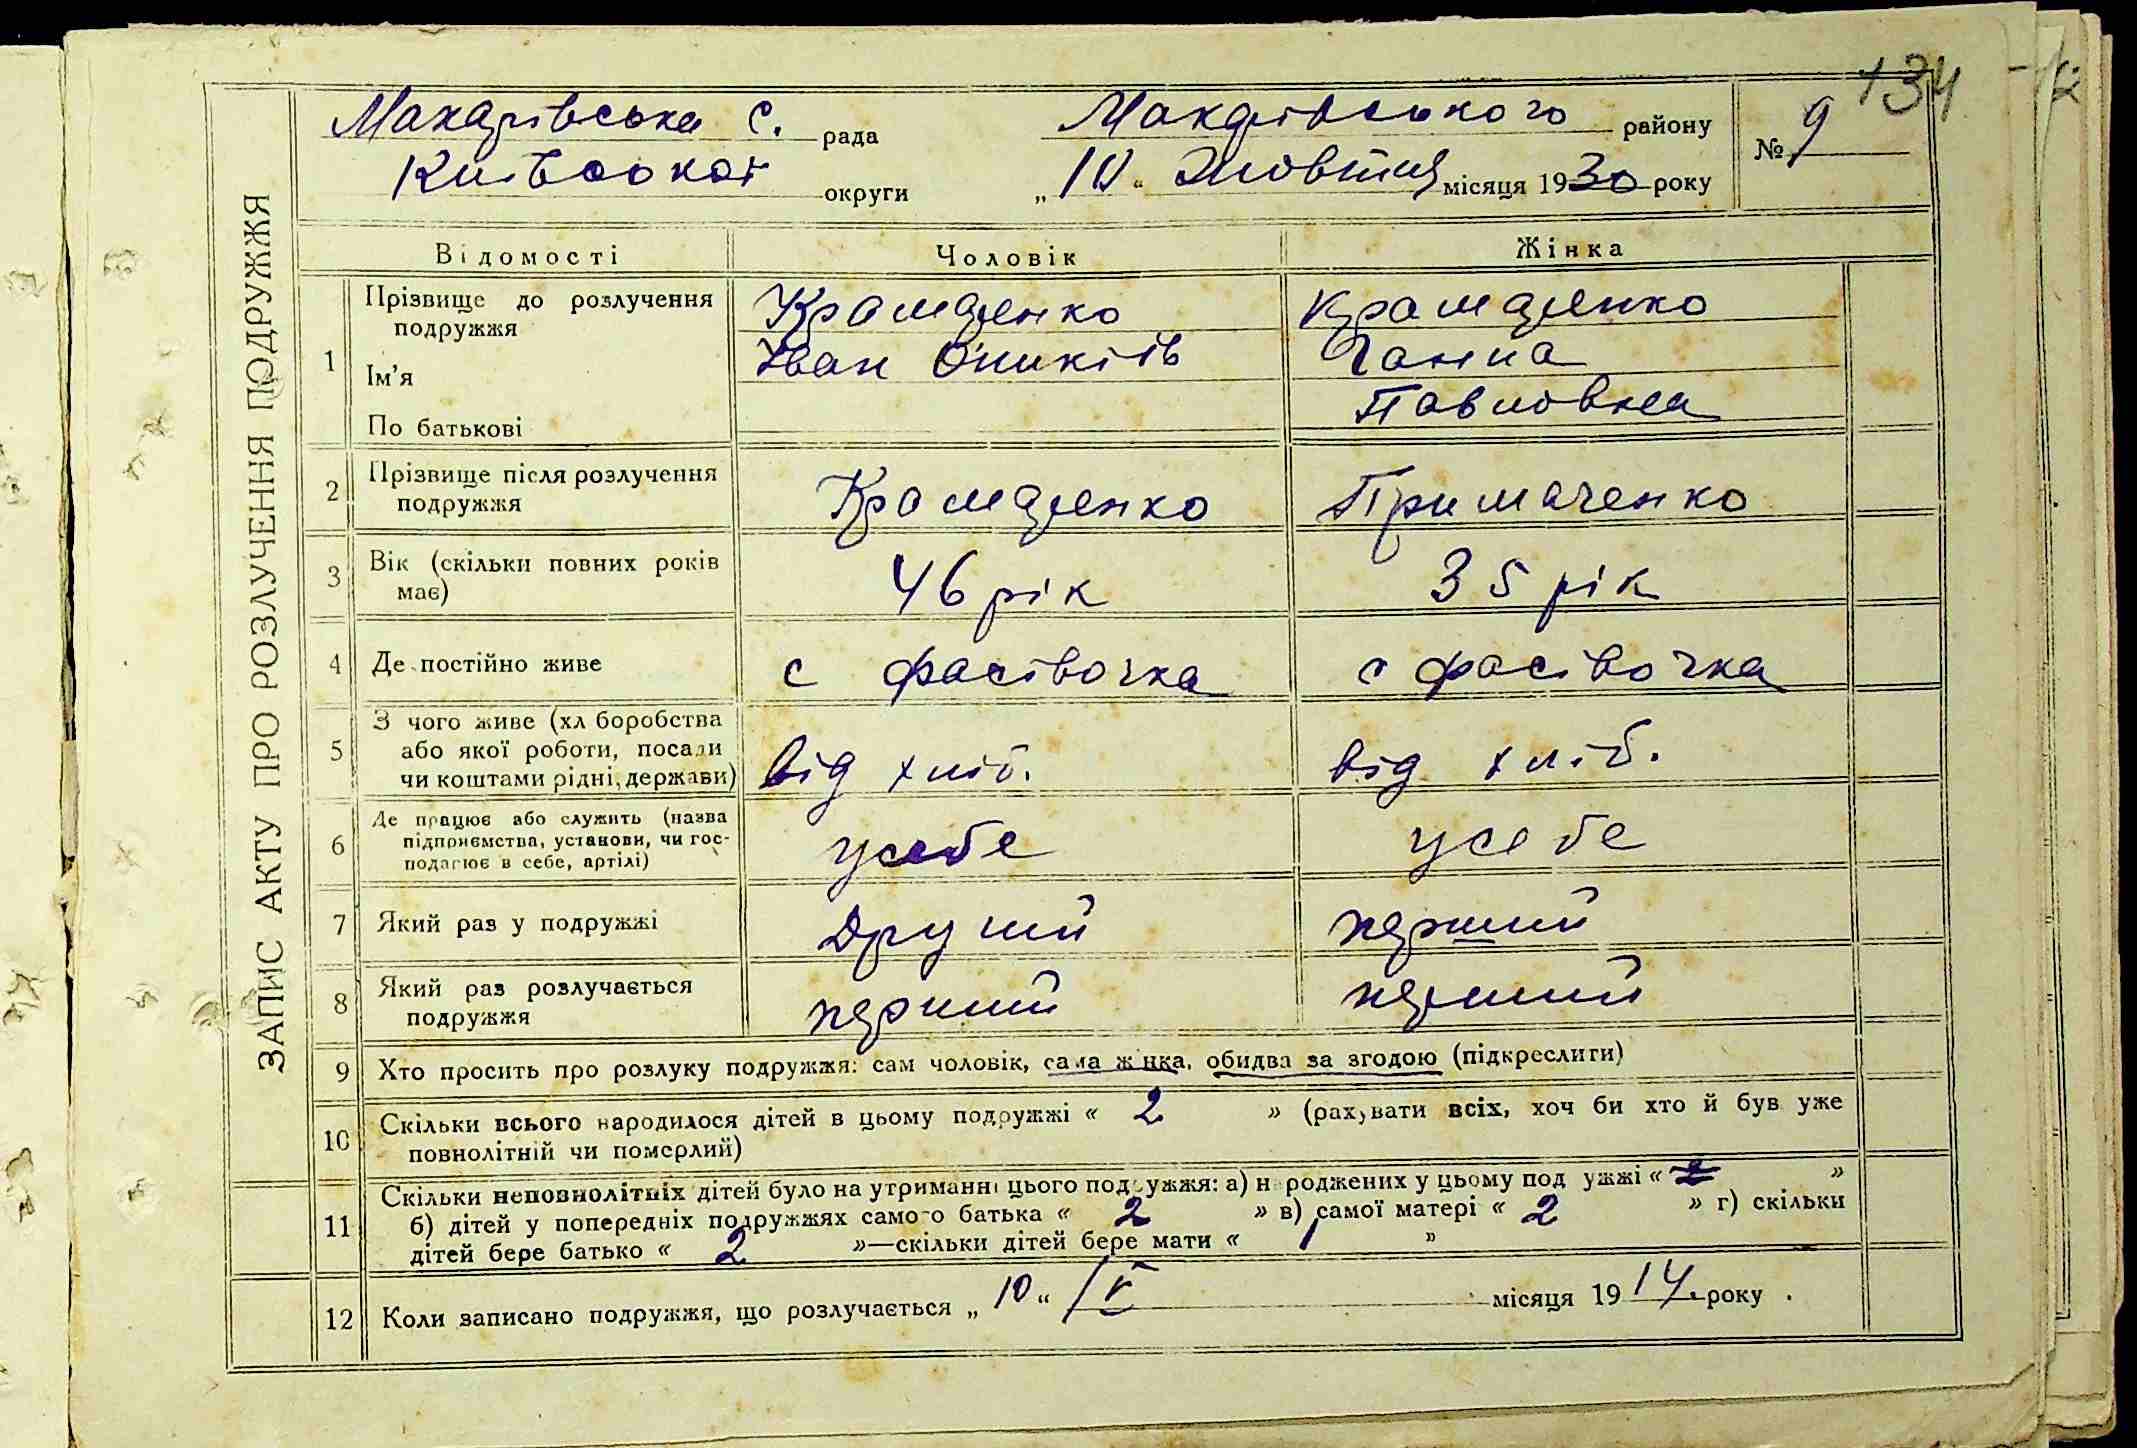 134
Макарівська с. рада Макарівського району № 9
Київської округи „10“ Жовтня місяця 1930 року
ЗАПИС АКТУ ПРО РОЗЛУЧЕННЯ ПОДРУЖЖЯ
Відомості Чоловік Жінка
1 Прізвище до розлучення подружжя Крамаренко Крамаренко
Ім'я Іван Ганна
По батькові Павловна
2 Прізвище після розлучення подружжя Крамаренко Примаченко
3 Вік (скільки повних років має) 46 рік 35 рік
4 Де постійно живе с Фасівочка с Фасівочка
5 З чого живе (хл боробства або якої роботи, посади чи коштами рідні, держави) від хліб. від хліб.
6 Де працює або служить (назва підприємства, установи, чи господарює в себе, артілі) у себе у себе
7 Який раз у подружжі другий перший
8 Який раз розлучається подружжя перший перший
9 Хто просить про розлуку подружжя: сам чоловік, сама жінка, обидва за згодою (підкреслити)
10 Скільки всього народилося дітей в цьому подружжі « 2 » (рахувати всіх, хоч би хто й був уже
повнолітній чи померлий)
11 Скільки неповнолітніх дітей було на утриманні цього подружжя: а) народжених у цьому подружжі « 2 »
б) дітей у попередніх подружжях самого батька « 2 » в) самої матері « 2 » г) скільки
дітей бере батько « 2 »—скільки дітей бере мати « 1 »
12 Коли записано подружжя, що розлучається „10“ IV місяця 1914 року.